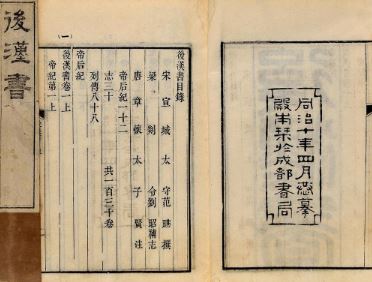 同治十年四月恭摹
殿本栞於成都書局
後漢書目錄
宋宣城太守范曄撰
梁剡令劉昭補志
唐章懷太子賢注
帝后紀一十二
志三十 共一百三十卷
列傳八十八
一
後漢書卷一上
帝紀第一上
後漢書